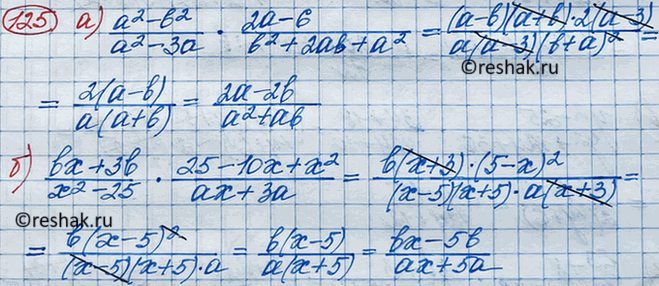 125 а) (a²-b²)/(a²-3a) · (2a-6)/(b²+2ab+a²) = ((a-b)(a+b)·2(a-3))/(a(a-3)(b+a)²) =
©reshak.ru
= 2(a-b)/(a(a+b)) = (2a-2b)/(a²+ab)
б) (bx+3b)/(x²-25) · (25-10x+x²)/(ax+3a) = (b(x+3)·(5-x)²)/((x-5)(x+5)·a(x+3)) =
©reshak.ru
= (b(x-5)²)/((x-5)(x+5)·a) = b(x-5)/(a(x+5)) = (bx-5b)/(ax+5a)
©reshak.ru